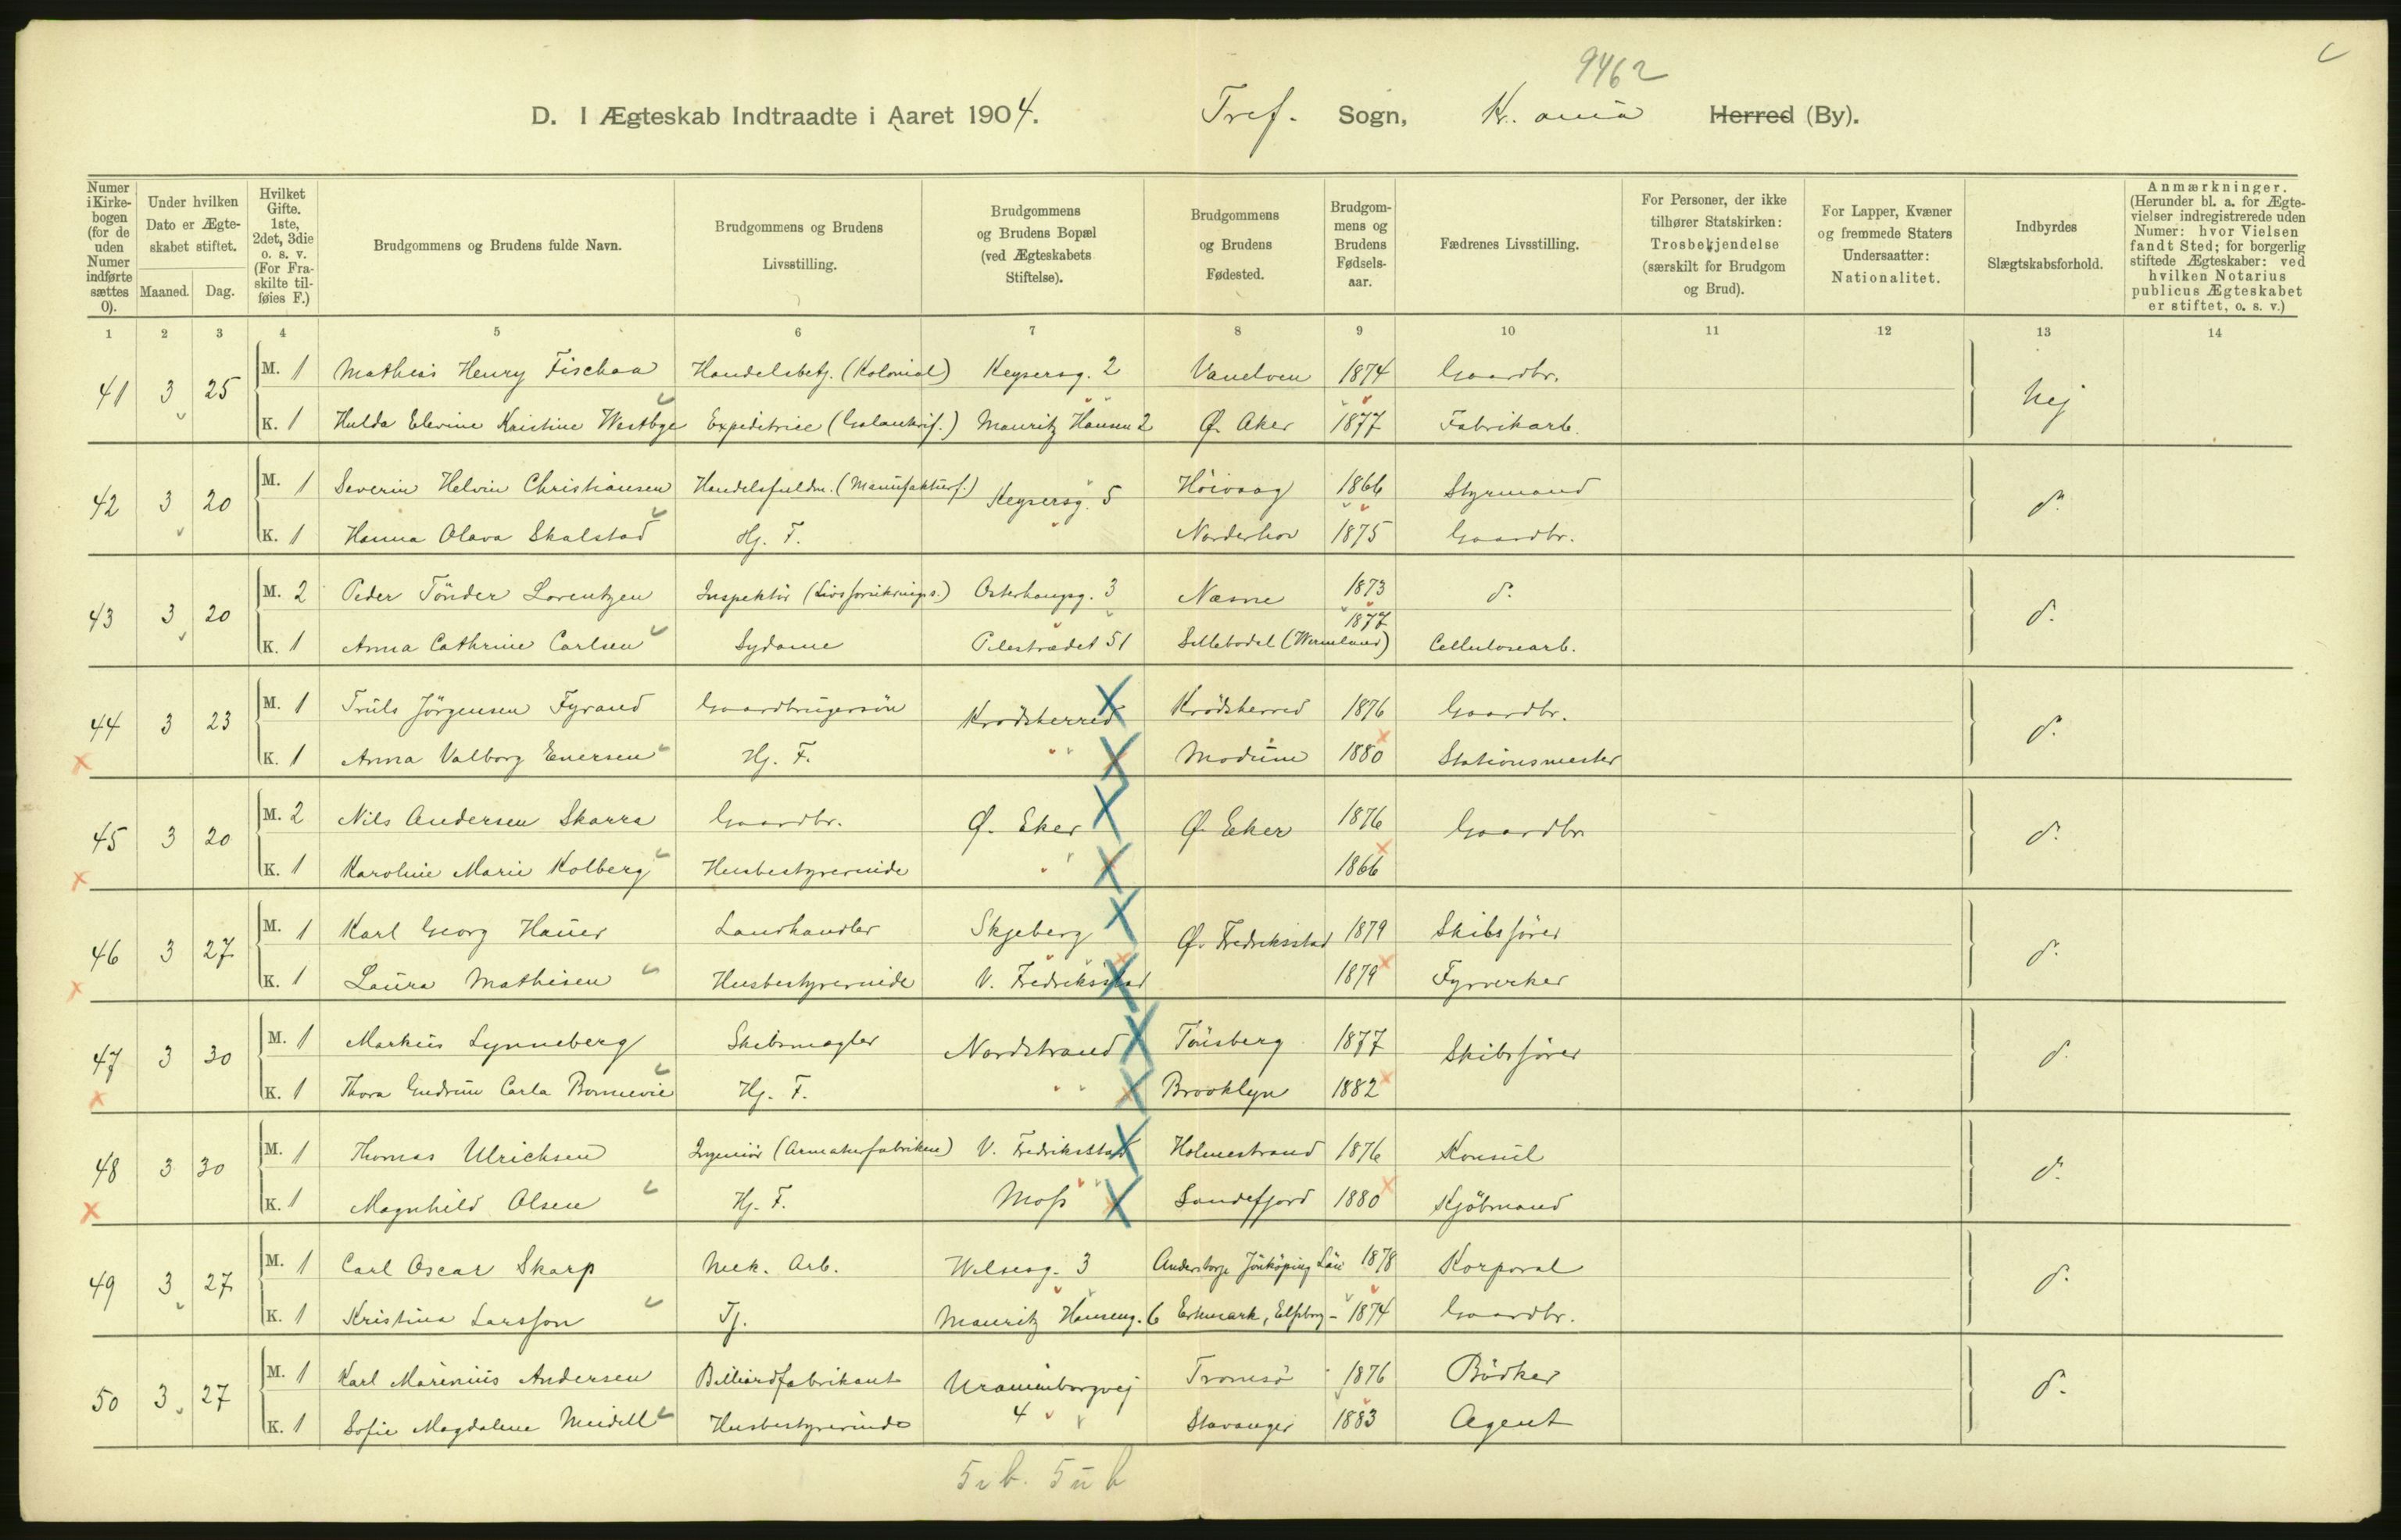 9462
D. I Ægteskab Indtraadte i Aaret 1904. Tref. Sogn, Kr. ania Herred (By).
Numer i Kirke-bogen (for de uden Numer indførte sættes 0).
Under hvilken Dato er Ægte-skabet stiftet.
Maaned. Dag.
Hvilket Gifte. 1ste, 2det, 3die o. s. v. (For Fra-skilte til-føies F.)
Brudgommens og Brudens fulde Navn.
Brudgommens og Brudens Livsstilling.
Brudgommens og Brudens Bopæl (ved Ægteskabets Stiftelse).
Brudgommens og Brudens Fødested.
Brudgom-mens og Brudens Fødsels-aar.
Fædrenes Livsstilling.
For Personer, der ikke tilhører Statskirken: Trosbekjendelse (særskilt for Brudgom og Brud).
For Lapper, Kvæner og fremmede Staters Undersaatter: Nationalitet.
Indbyrdes Slægtskabsforhold.
Anmærkninger. (Herunder bl. a. for Ægte-vielser indregistrerede uden Numer: hvor Vielsen fandt Sted; for borgerlig stiftede Ægteskaber: ved hvilken Notarius publicus Ægteskabet er stiftet, o. s. v.)
1 2 3 4 5 6 7 8 9 10 11 12 13 14
41 3 25 M. 1 Mathias Henry Fischaa Handelsbetj. (Kolonial) Keysersg. 2 Vanelven 1874 Gaardbr. Nej
K. 1 Hulda Elevine Kristine Westbye Expeditrice (Galanterif.) Mauritz Hansen 2 Ø. Aker 1877 Fabrikarb.
42 3 20 M. 1 Severin Helvin Christiansen Handelsfuldm. (Manufakturf.) Keysersg. 5 Höivaag 1866 Styrmand d.
K. 1 Hanna Olava Skalstad Hj. F. Norderhov 1875 Gaardbr.
43 3 20 M. 2 Peder Tönder Lorentzen Inspektör (Livsforsikrings.) Osterhausg. 3 Næsne 1873 d. d.
K. 1 Anna Cathrine Carlsen Sydame Pilestrædet 51 Sillebodal (Wermland) 1877 Cellulosearb.
44 3 23 M. 1 Truls Jörgensen Fyrand Gaardbrugersön Krödsherred Krödsherred 1876 Gaardbr. d.
K. 1 Anna Valborg Enersen Hj. F. " Modum 1880 Stationsmester
45 3 20 M. 2 Nils Andersen Skarra Gaardbr. Ø. Eker Ø. Eker 1876 Gaardbr. d.
K. 1 Karoline Marie Kolberg Husbestyrerinde " 1866
46 3 27 M. 1 Karl Georg Hauer Landhandler Skjeberg Ø. Fredriksstad 1879 Skibsfører d.
K. 1 Laura Mathisen Husbestyrerinde V. Fredriksstad 1879 Fyrverker
47 3 30 M. 1 Markus Lynneberg Skibsmægler Nordstrand Tönsberg 1877 Skibsfører d.
K. 1 Thora Gudrun Carla Bonnevie Hj. F. " Brooklyn 1882
48 3 30 M. 1 Thomas Ulrichsen Ingeniör (Armaturfabriken) V. Fredriksstad Holmestrand 1876 Konsul d.
K. 1 Magnhild Olsen Hj. F. Moss Sandefjord 1880 Kjöbmand
49 3 27 M. 1 Carl Oscar Skarp Mek. Arb. Welsesg. 3 Anderstorp Jönköping Län 1878 Korporal d.
K. 1 Kristina Larsson Tj. Mauritz Hanseng. 6 , Elfsborg - 1874 Gaardbr.
50 3 27 M. 1 Karl Marinius Andersen Billiardfabrikant Uranienborgvej Tromsö 1876 Bödker d.
K. 1 Sofie Magdalene Meidell Husbestyrerinde 4 Stavanger 1883 Agent